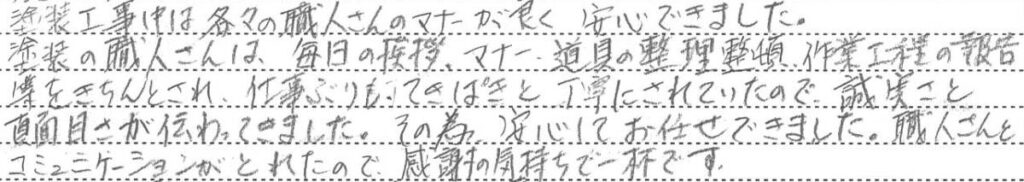 塗装工事中は各々の職人さんのマナーが良く安心できました。
塗装の職人さんは、毎日の挨拶、マナー、道具の整理整頓、作業工程の報告
等をきちんとされ、仕事ぶりもてきぱきと丁寧にされていたので、誠実さと
真面目さが伝わってきました。その為、安心してお任せできました。職人さんと
コミュニケーションがとれたので、感謝の気持ちで一杯です。